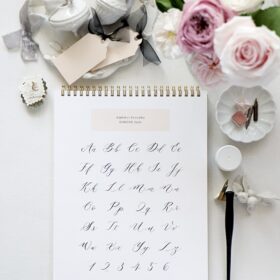 Aa Bb Cc Dd Ee
Ff Gg Hh Ii Jj
Kk Ll Mm Nn
Oo Pp Qq Rr
Ss Tt Uu Vv
Ww Xx Yy Zz
1 2 3 4 5 6